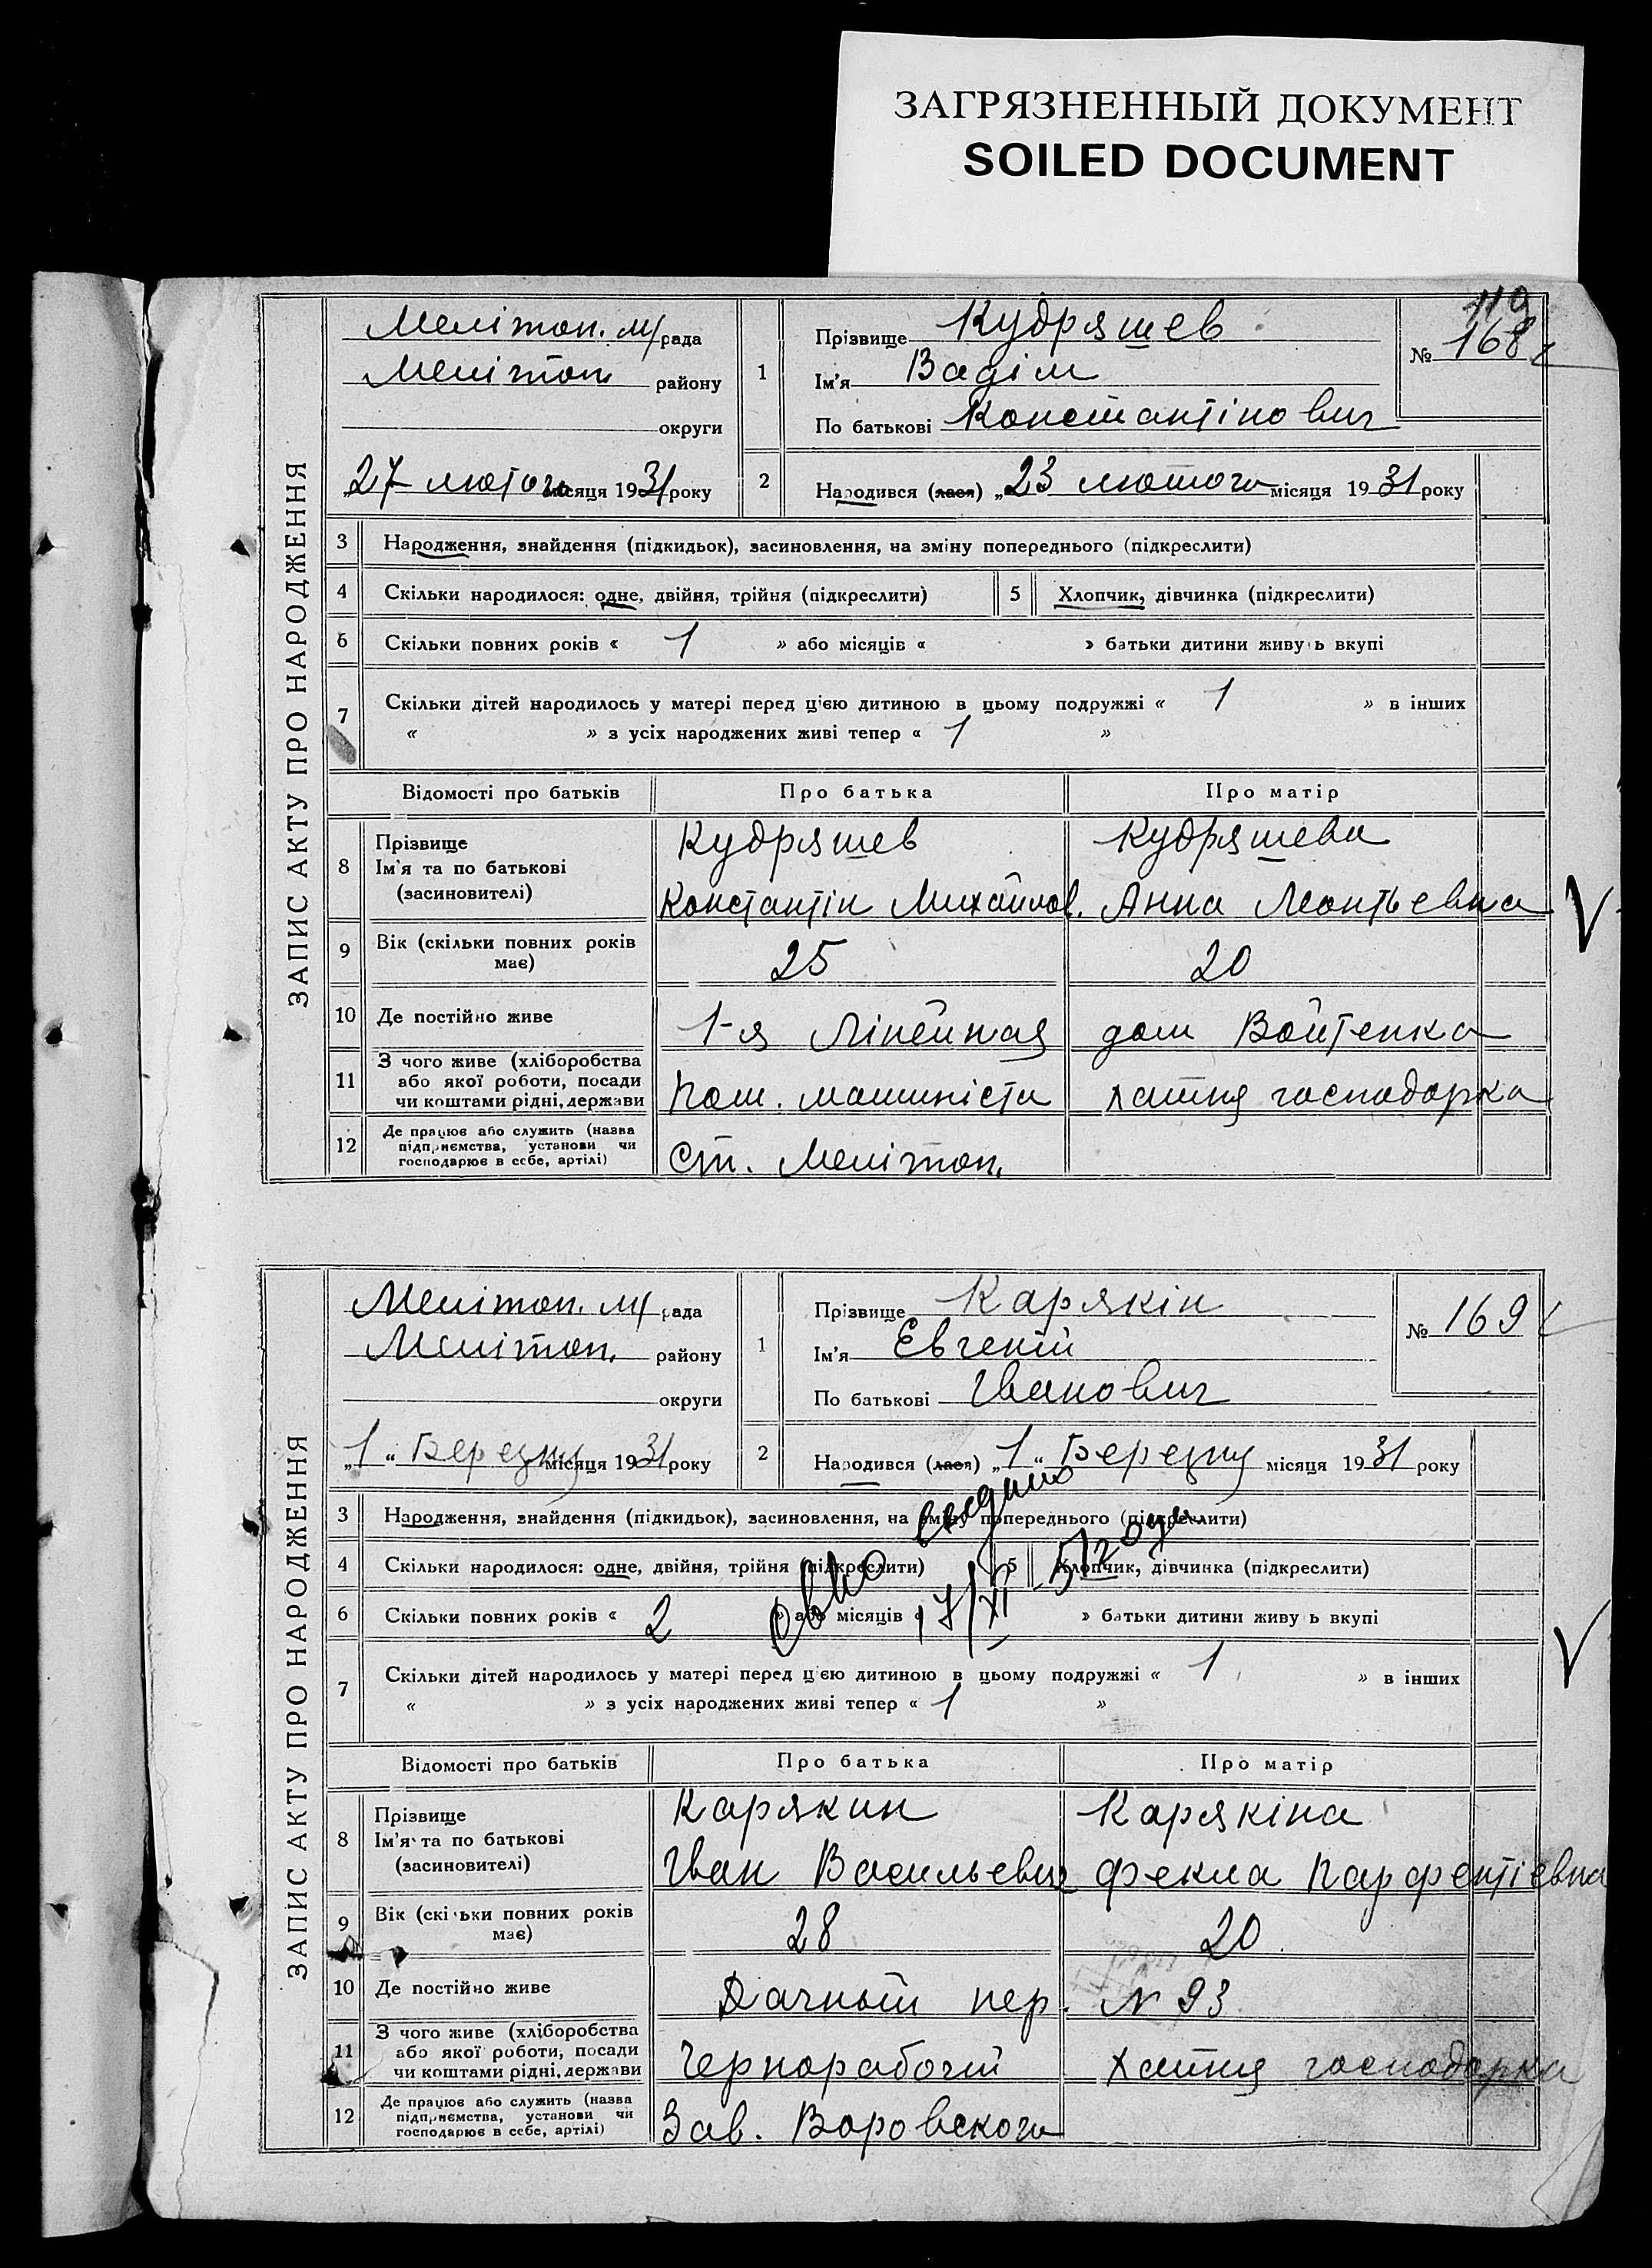 ЗАГРЯЗНЕННЫЙ ДОКУМЕНТ
SOILED DOCUMENT
119
ЗАПИС АКТУ ПРО НАРОДЖЕННЯ
Меlітоп. м/рада
Меlітоп. району
округи
27 лютого місяця 1931 року
1
Прізвище Кудряшев
Ім'я Вадім
По батькові Константінович
№ 168
2
Народився (лася) „23 лютого місяця 1931 року
3 Народження, знайдення (підкидьок), засиновлення, на зміну попереднього (підкреслити)
4 Скільки народилося: одне, двійня, трійня (підкреслити) 5 Хлопчик, дівчинка (підкреслити)
6 Скільки повних років « 1 » або місяців « » батьки дитини живу ь вкупі
7 Скільки дітей народилось у матері перед цією дитиною в цьому подружжі « 1 » в інших
« » з усіх народжених живі тепер « 1 »
Відомості про батьків Про батька Про матір
8 Прізвище
Ім'я та по батькові
(засиновителі)
Кудряшев
Константін Михайлов.
Кудряшева
Анна Леонтьевна
9 Вік (скільки повних років має) 25 20
10 Де постійно живе 1-я Лінейная дом Войтенка
11 З чого живе (хліборобства
або якої роботи, посади
чи коштами рідні, держави
Пом. машиніста хатня господарка
12 Де працює або служить (назва
підприємства, установи чи
господарює в себе, артілі)
Ст. Меlітоп.
ЗАПИС АКТУ ПРО НАРОДЖЕННЯ
Меlітоп. м/рада
Меlітоп. району
округи
„1" Березня місяця 1931 року
1
Прізвище Карякін
Ім'я Евгеній
По батькові Іванович
№ 169
2
Народився (лася) „1" Березня місяця 1931 року
3 Народження, знайдення (підкидьок), засиновлення, на зміну попереднього (підкреслити)
4 Скільки народилося: одне, двійня, трійня (підкреслити) 5 Хлопчик, дівчинка (підкреслити)
6 Скільки повних років « 2 » або місяців « » батьки дитини живу ь вкупі
7 Скільки дітей народилось у матері перед цією дитиною в цьому подружжі « 1 » в інших
« » з усіх народжених живі тепер « 1 »
Відомості про батьків Про батька Про матір
8 Прізвище
Ім'я та по батькові
(засиновителі)
Карякин
Іван Васильевич
Карякіна
Фекла Парфентіевна
9 Вік (скільки повних років має) 28 20
10 Де постійно живе Дачный пер. N 93
11 З чого живе (хліборобства
або якої роботи, посади
чи коштами рідні, держави
Чернорабочій хатня господарка
12 Де працює або служить (назва
підприємства, установи чи
господарює в себе, артілі)
Зав. Воровского